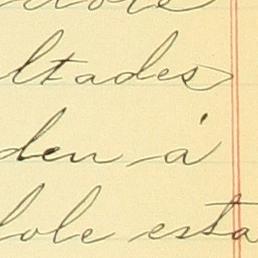 ltades
den á
dole esta